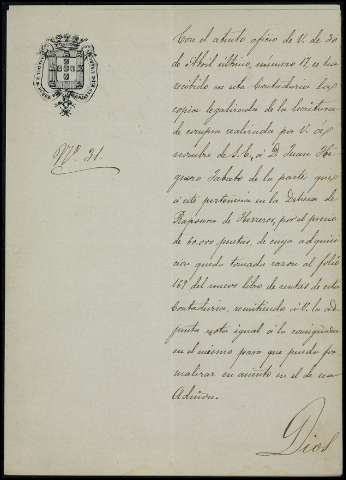 Nº 31.
Con el atento oficio de V. de 30
de Abril último, número 17, se ha
recibido en esta Contaduría la
copia legalizada de la escritura
de compra realizada por V. en
nombre de S. E, á D. Juan
de la parte que
á este pertenecia en la Dehesa de
Raposera de Herreros, por el precio
de 60.000 pesetas, de cuya adquisi-
cion queda tomada razon al folio
169 del nuevo libro de rentas de esta
Contaduría, remitiendo á V. la ad-
junta nota igual á la consignada
en el mismo para que pueda for-
malizar su asiento en el de esa
Admon.
Dios